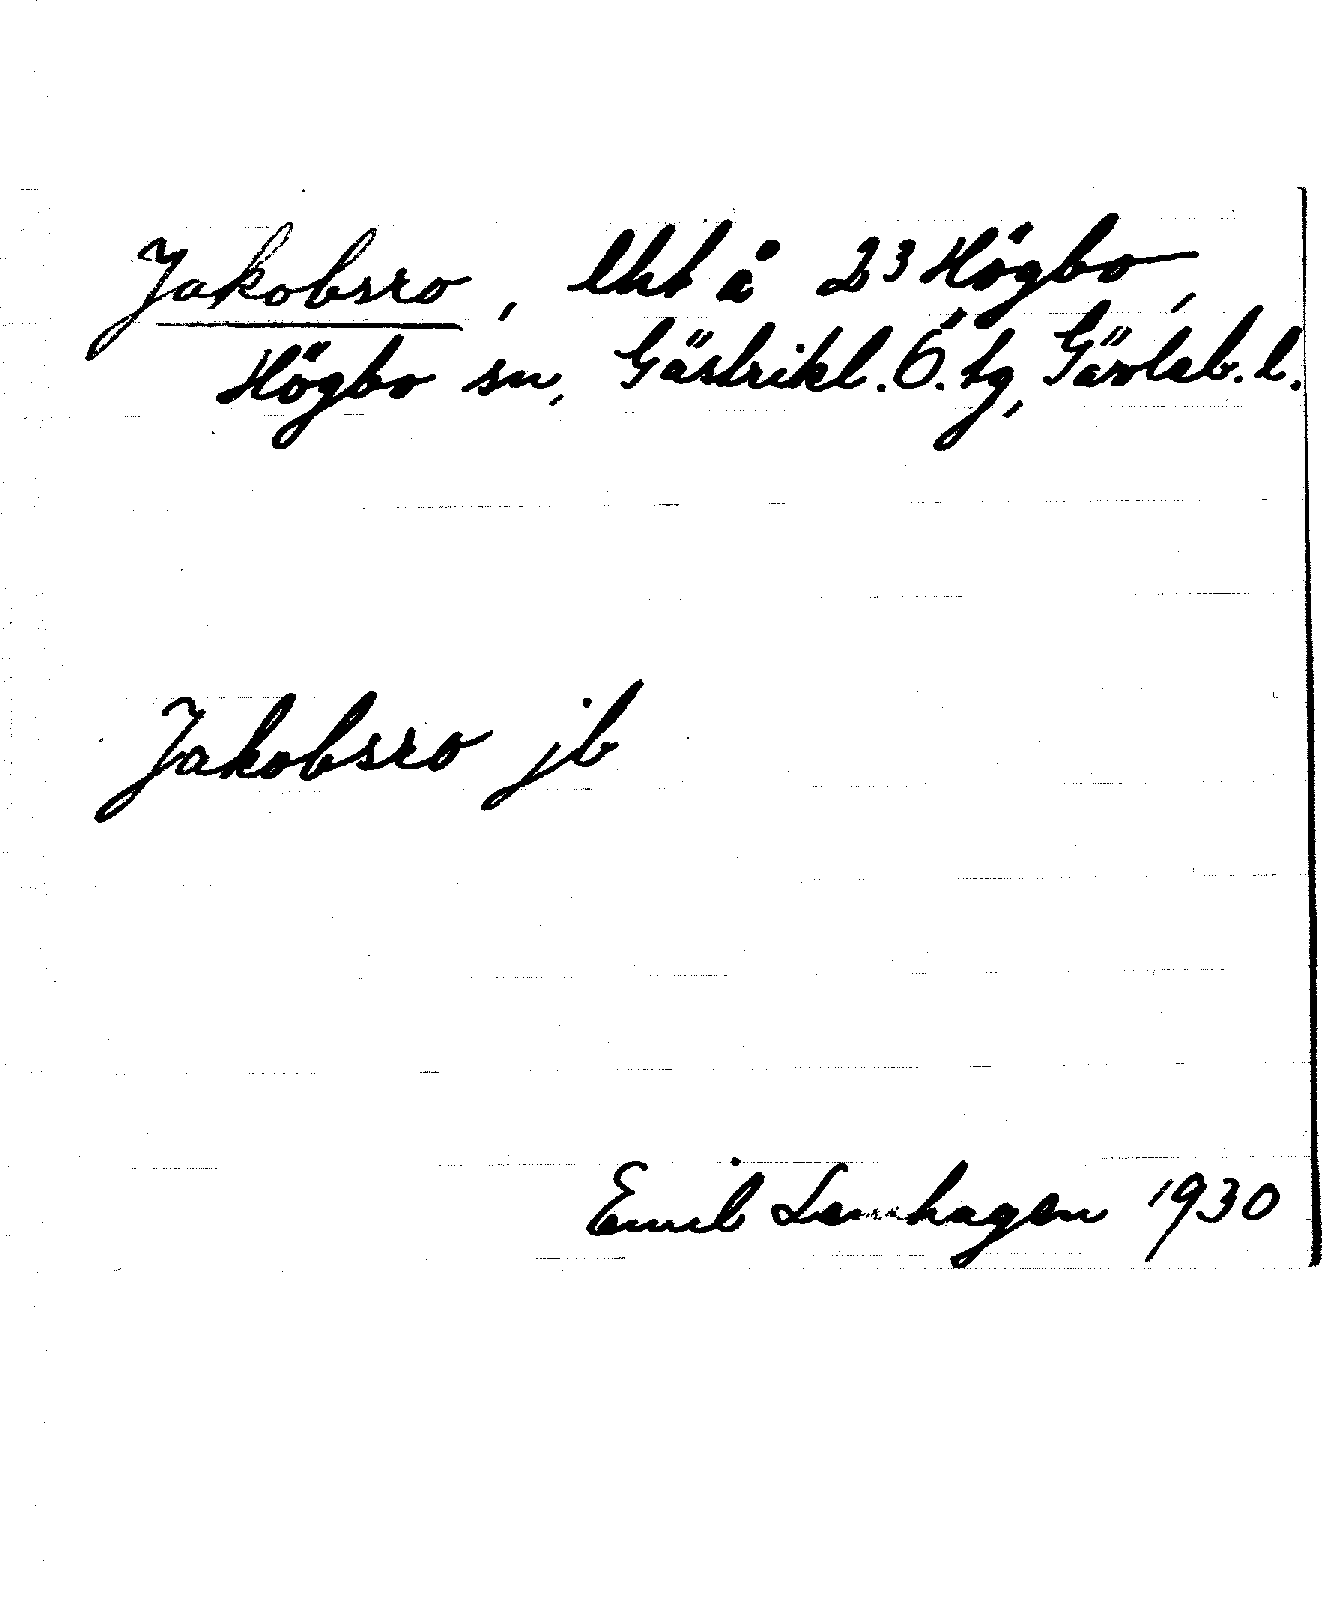 Jakobsro, lht å 2³ Högbo,
Högbo sn, Gästrikl. Ö. tg, Gävleb. l.
Jakobsro jb
Emil Lennhagen 1930